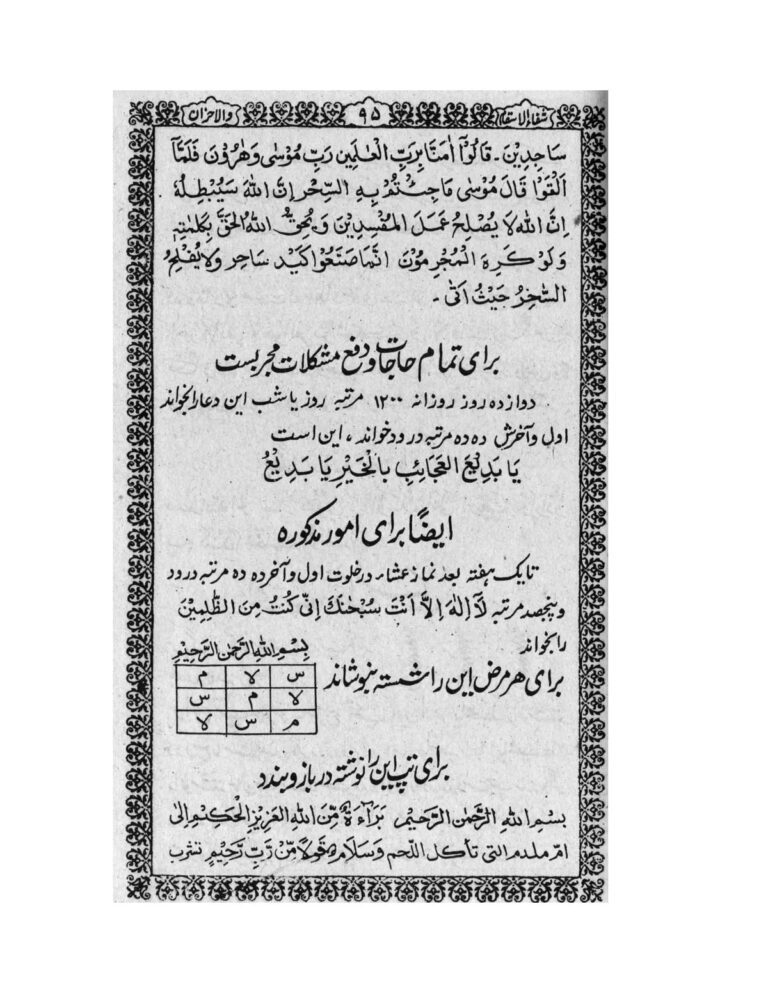 شفاء الاسقام ۹۵ والاحزان
سَاجِدِيْنَ۔ قَالُوْا اٰمَنَّا بِرَبِّ الْعٰلَمِيْنَ رَبِّ مُوْسٰى وَهٰرُوْنَ فَلَمَّآ
اَلْقَوْا قَالَ مُوْسٰى مَا جِئْتُمْ بِهِ السِّحْرُ اِنَّ اللّٰهَ سَيُبْطِلُهٗ
اِنَّ اللّٰهَ لَا يُصْلِحُ عَمَلَ الْمُفْسِدِيْنَ وَيُحِقُّ اللّٰهُ الْحَقَّ بِكَلِمٰتِهٖ
وَلَوْ كَرِهَ الْمُجْرِمُوْنَ اِنَّمَا صَنَعُوْا كَيْدُ سَاحِرٍ وَلَا يُفْلِحُ
السَّاحِرُ حَيْثُ اَتٰى۔
برای تمام حاجات و دفع مشکلات مجربست
دوازده روز روزانہ ۱۲۰۰ مرتبہ روز یا شب این دعا را بخواند
اول و آخرش ده ده مرتبہ درود خواند، این است
يَا بَدِيْعَ الْعَجَائِبِ بِالْخَيْرِ يَا بَدِيْعُ
ایضًا برای امور مذکوره
تا یک ہفتہ بعد نماز عشاء در خلوت اول و آخر ده ده مرتبہ درود
و پنجصد مرتبہ لَآ اِلٰهَ اِلَّا اَنْتَ سُبْحٰنَكَ اِنِّىْ كُنْتُ مِنَ الظّٰلِمِيْنَ
را بخواند
بِسْمِ اللّٰهِ الرَّحْمٰنِ الرَّحِيْمِ
برای ہر مرض این را شستہ بنوشاند
س لا م
لا م س
م س لا
برای تپ این را نوشتہ در بازو بندد
بِسْمِ اللّٰهِ الرَّحْمٰنِ الرَّحِيْمِ بَرَآءَةٌ مِّنَ اللّٰهِ الْعَزِيْزِ الْحَكِيْمِ اِلٰى
امّ ملدم التی تأكل اللّحم وَسَلَامٌ قَوْلًا مِّنْ رَّبٍّ رَّحِيْمٍ تشرب